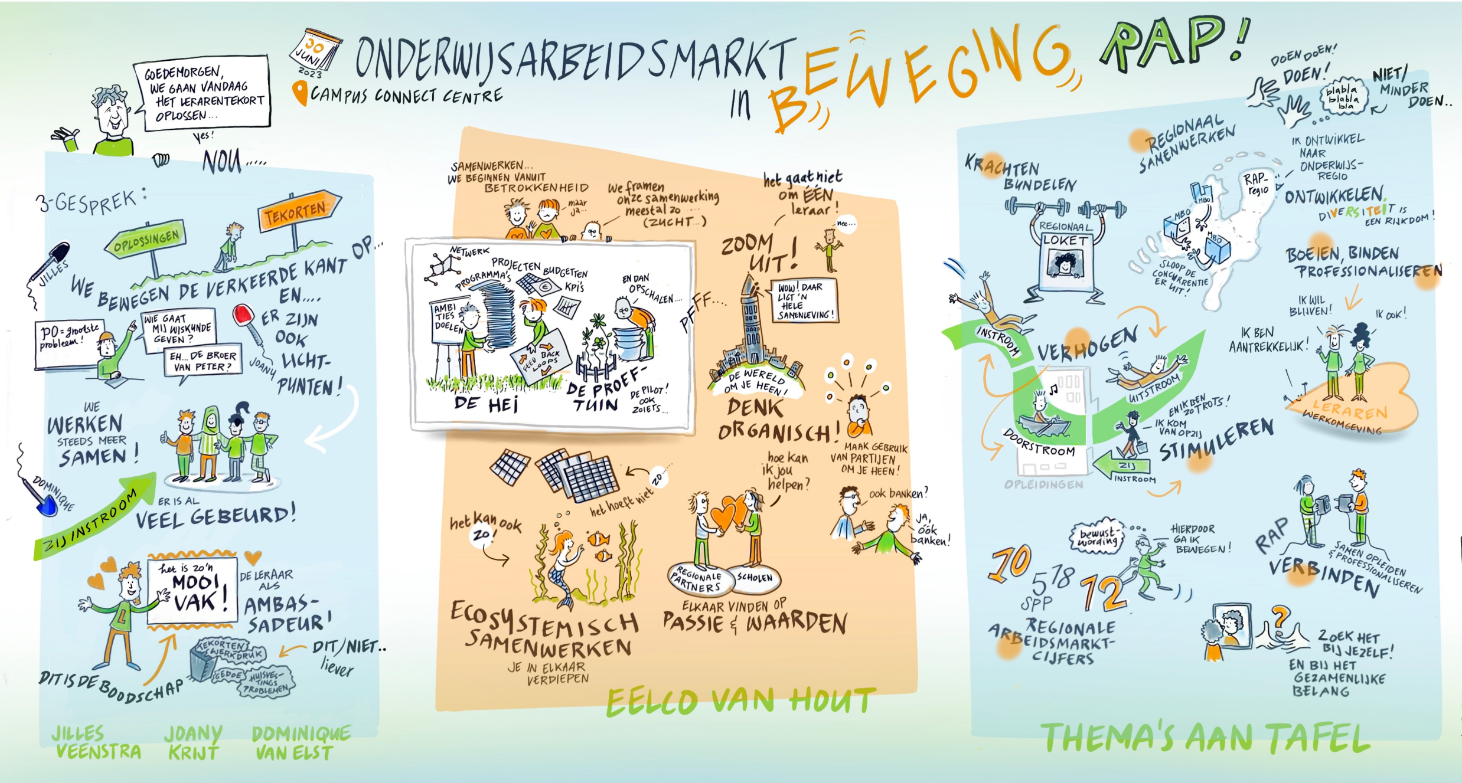 30
JUNI
2023
ONDERWIJSARBEIDSMARKT
IN BEWEGING
RAP!
CAMPUS CONNECT CENTRE
GOEDEMORGEN,
WE GAAN VANDAAG
HET LERARENTEKORT
OPLOSSEN...
yes!
NOU.....
3-GESPREK:
OPLOSSINGEN
TEKORTEN
JILLES
WE BEWEGEN DE VERKEERDE KANT OP...
EN....
ER ZIJN
OOK
LICHT-
PUNTEN!
PO = grootste
probleem!
WIE GAAT
MIJ WISKUNDE
GEVEN?
EH... DE BROER
VAN PETER?
JOANY
WE
WERKEN
STEEDS MEER
SAMEN!
DOMINIQUE
ZIJ INSTROOM
ER IS AL
VEEL GEBEURD!
het is zo'n
MOOI
VAK!
DE LERAAR
ALS
AMBAS-
SADEUR!
L
DIT IS DE BOODSCHAP
TEKORTEN
WERKDRUK
GEDOE
HUISVES-
TINGS
PROBLEMEN
DIT/NIET..
liever
JILLES
VEENSTRA
JOANY
KRIJT
DOMINIQUE
VAN ELST
SAMENWERKEN...
WE BEGINNEN VANUIT
BETROKKENHEID
maar
ja...
we framen
onze samenwerking
meestal zo ....
(ZUCHT...)
NETWERK
PROGRAMMA'S
PROJECTEN
BUDGETTEN
KPI's
AMBI
TIES
DOELEN
FEED BACK
LOOPS
EN DAN
OPSCHALEN...
DE HEI
DE PROEF-
TUIN
DE PILOT!
OOK
ZOIETS...
PFF...
het gaat niet
om ÉÉN
leraar!
nee...
ZOOM
UIT!
WOW! DAAR
LIGT 'N
HELE
SAMENLEVING!
DE WERELD
OM JE HEEN!
DENK
ORGANISCH!
MAAK GEBRUIK
VAN PARTIJEN
OM JE HEEN!
ook banken?
JA,
ÓÓK
banken!
het hoeft niet zo
het kan ook
zo!
ECOSYSTEMISCH
SAMENWERKEN
JE IN ELKAAR
VERDIEPEN
hoe kan
ik jou
helpen?
REGIONALE
PARTNERS
SCHOLEN
ELKAAR VINDEN OP
PASSIE & WAARDEN
EELCO VAN HOUT
DOEN DOEN!
DOEN!
blabla
blabla
bla
NIET/
MINDER
DOEN..
KRACHTEN
BUNDELEN
REGIONAAL
LOKET
REGIONAAL
SAMENWERKEN
IK ONTWIKKEL
NAAR
ONDERWIJS-
REGIO
RAP-
regio
MBO
MBO
HBO
SLOOP DE
CONCURRENTIE
ER UIT!
ONTWIKKELEN
DIVERSITEIT IS
EEN RIJKDOM!
BOEIEN, BINDEN
PROFESSIONALISEREN
IK WIL
BLIJVEN!
IK OOK!
IK BEN
AANTREKKELIJK!
LERAREN
WERKOMGEVING
INSTROOM
VERHOGEN
UITSTROOM
DOORSTROOM
OPLEIDINGEN
EN IK BEN
ZO TROTS!
IK KOM
VAN OPZIJ
ZIJ
INSTROOM
STIMULEREN
10
5,78
SPP
12
bewust-
wording
HIERDOOR
GA IK
BEWEGEN!
REGIONALE
ARBEIDSMARKT-
CIJFERS
RAP
VERBINDEN
SAMEN OPLEIDEN
& PROFESSIONALISEREN
?
ZOEK HET
BIJ JEZELF!
EN BIJ HET
GEZAMENLIJKE
BELANG
THEMA'S AAN TAFEL